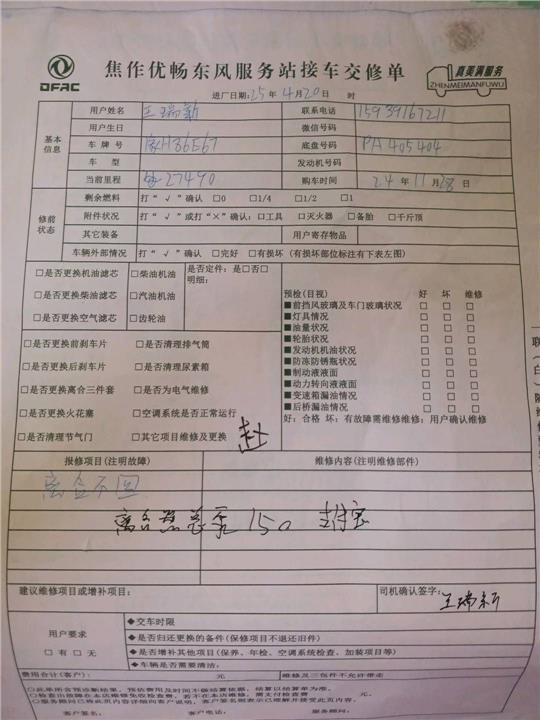 DFAC
焦作优畅东风服务站接车交修单
真美满服务
ZHENMEIMANFUWU
进厂日期:25年4月20日 时
基本信息
用户姓名 王瑞新 联系电话 15939167211
用户生日 微信号码
车牌号 H86E67 底盘号码 PA405404
车型 发动机号码
当前里程 27490 购车时间 24年11月28日
修前状态
剩余燃料 打“√”确认 □0 □1/4 □1/2 □1
附件状况 打“√”或打“×”确认:□工具 □灭火器 □备胎 □千斤顶
其它装备 用户寄存物品
车辆外部情况 打“√”确认 □完好 □有损坏(有损坏部位标注有下表左图)
□是否更换机油滤芯 □柴油机油 是否定件:是□否□
明细:
□是否更换柴油滤芯 □汽油机油
□是否更换空气滤芯 □齿轮油
预检(目视) 好 坏 维修
■前挡风玻璃及车门玻璃状况 □ □ □
■灯具情况 □ □ □
■油量状况 □ □ □
■轮胎状况 □ □ □
■发动机机油状况 □ □ □
■防冻防锈瓶状况 □ □ □
■制动液液面 □ □ □
■动力转向液液面 □ □ □
■变速箱漏油情况 □ □ □
■后桥漏油情况 □ □ □
好:合格 坏:有故障需维修维修:用户确认维修
□是否更换前刹车片 □是否清理排气筒
□是否更换后刹车片 □是否清理尿素箱
□是否更换离合三件套 □是否为电气维修
□是否更换火花塞 □空调系统是否正常运行
□是否清理节气门 □其它项目维修及更换
赴
报修项目(注明故障) 维修内容(注明维修部件)
离合不回
离合器总泵 150
建议维修项目或增补项目: 司机确认签字: 王瑞新
用户要求
□有 □无
◆交车时限
◆是否归还更换的备件(保修项目不退还旧件)
◆是否增补其他项目(保养、年检、空调系统检查、加装项目等)
◆车辆是否需要清洁:
费用合计(客户): 元 维修及三包件不允许带走
客户签名: 客户电话: 服务顾问: